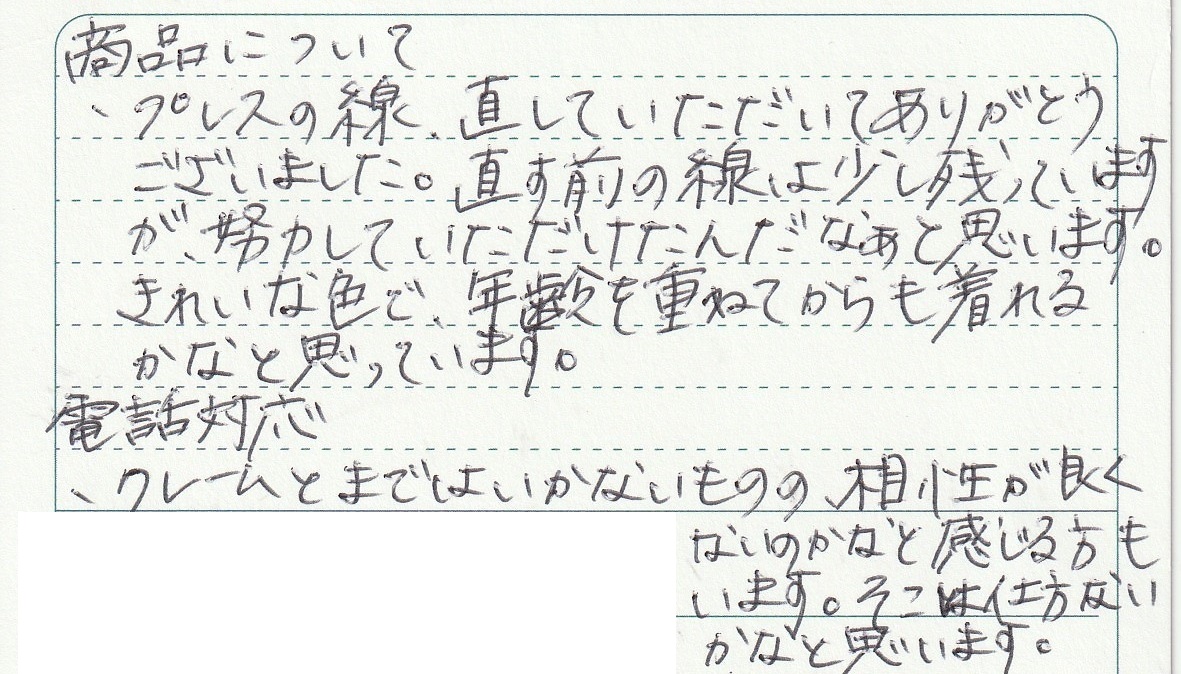 商品について
、プレスの線、直していただいてありがとう
ございました。直す前の線は少し残っています
が、努力していただけたんだなぁと思います。
きれいな色で、年齢を重ねてからも着れる
かなと思っています。
電話対応
、クレームとまではいかないものの、相性が良く
ないのかなと感じる方も
います。そこは仕方ない
かなと思います。